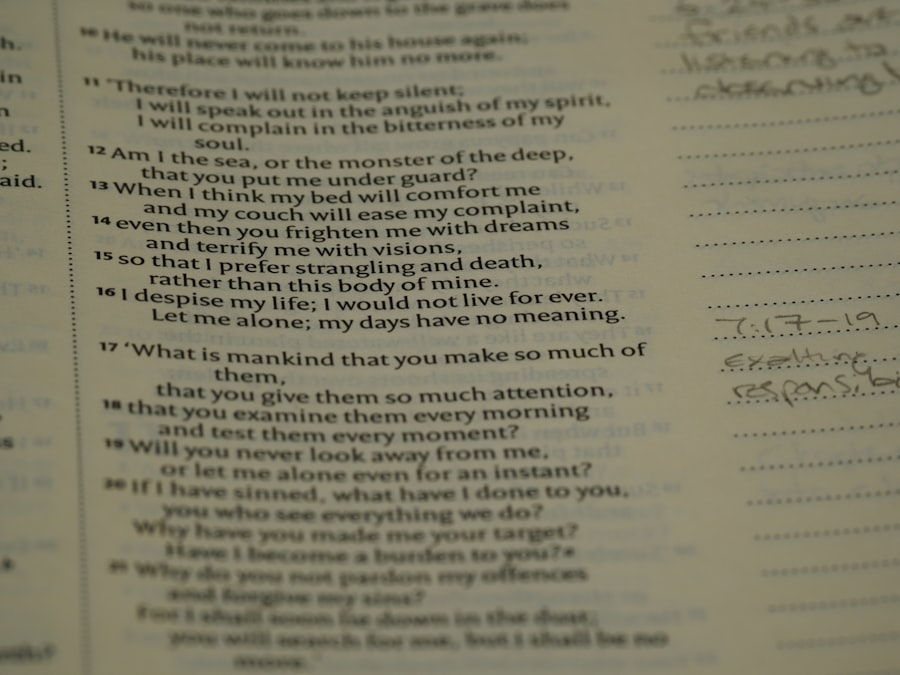 to one who goes down to the grave does
not return.
10 He will never come to his house again;
his place will know him no more.
11 ‘Therefore I will not keep silent;
I will speak out in the anguish of my spirit,
I will complain in the bitterness of my
soul.
12 Am I the sea, or the monster of the deep,
that you put me under guard?
13 When I think my bed will comfort me
and my couch will ease my complaint,
14 even then you frighten me with dreams
and terrify me with visions,
15 so that I prefer strangling and death,
rather than this body of mine.
16 I despise my life; I would not live for ever.
Let me alone; my days have no meaning.
17 ‘What is mankind that you make so much of
them,
that you give them so much attention,
18 that you examine them every morning
and test them every moment?
19 Will you never look away from me,
or let me alone even for an instant?
20 If I have sinned, what have I done to you,
you who see everything we do?
Why have you made me your target?
Have I become a burden to you?
21 Why do you not pardon my offences
and forgive my sins?
For I shall soon lie down in the dust;
you will search for me, but I shall be no
more.’
h.
in
n
ed.
;
aid.
friends
listening to
7:17-19
exalting